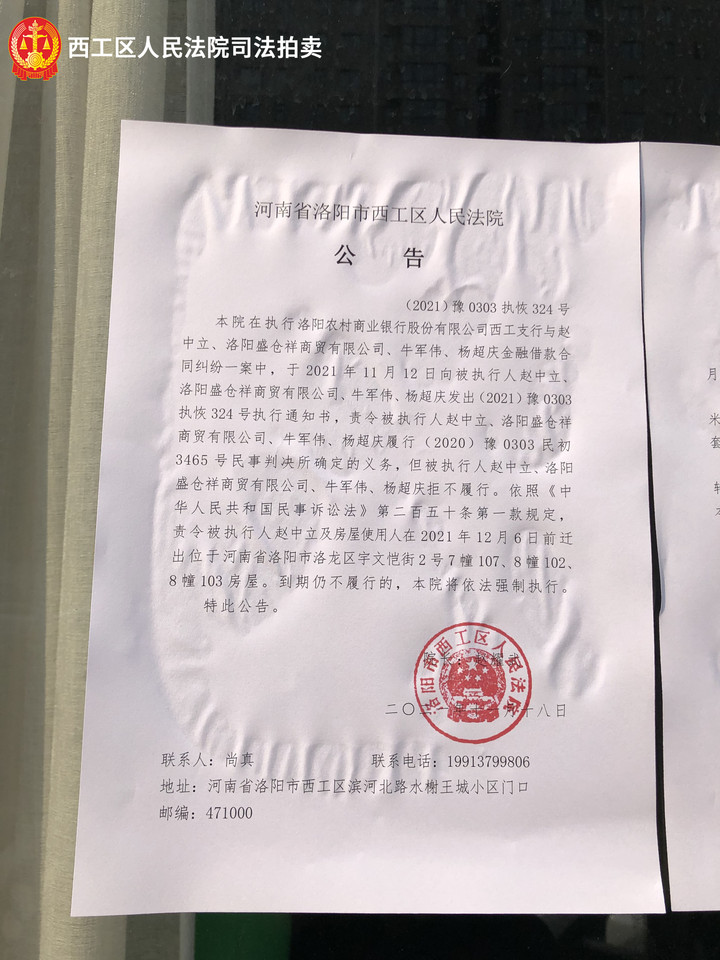 西工区人民法院司法拍卖
河南省洛阳市西工区人民法院
公 告
(2021)豫0303执恢324号
本院在执行洛阳农村商业银行股份有限公司西工支行与赵
中立、洛阳盛仓祥商贸有限公司、牛军伟、杨超庆金融借款合
同纠纷一案中，于2021年11月12日向被执行人赵中立、
洛阳盛仓祥商贸有限公司、牛军伟、杨超庆发出(2021)豫0303
执恢324号执行通知书，责令被执行人赵中立、洛阳盛仓祥
商贸有限公司、牛军伟、杨超庆履行(2020)豫0303民初
3465号民事判决所确定的义务，但被执行人赵中立、洛阳
盛仓祥商贸有限公司、牛军伟、杨超庆拒不履行。依照《中
华人民共和国民事诉讼法》第二百五十条第一款规定，
责令被执行人赵中立及房屋使用人在2021年12月6日前迁
出位于河南省洛阳市洛龙区宇文恺街2号7幢107、8幢102、
8幢103房屋。到期仍不履行的，本院将依法强制执行。
特此公告。
院长：赵耀
洛阳市西工区人民法院
二〇二一年十一月十八日
联系人：尚真 联系电话：19913799806
地址：河南省洛阳市西工区滨河北路水榭王城小区门口
邮编：471000
月
米
套
本